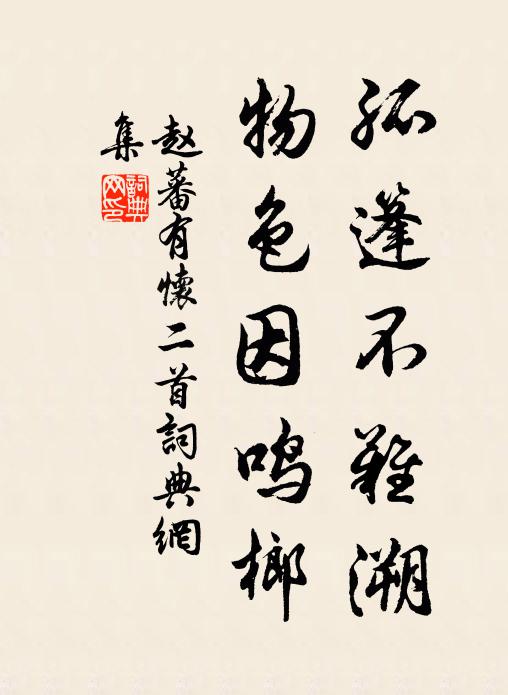 孤篷不難溯
物色因鳴榔
赵蕃有懷二首詞典網
集
詞典網印